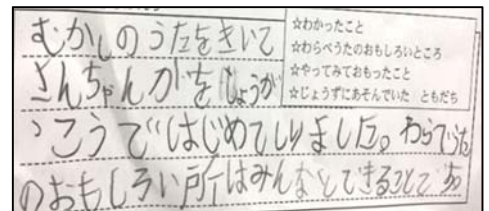 むかしのうたをきいて
さんちゃんがをしょうが
っこうではじめてしりました。わらべうた
のおもしろい所はみんなとできることで
☆わかったこと
☆わらべうたのおもしろいところ
☆やってみておもったこと
☆じょうずにあそんでいた ともだち